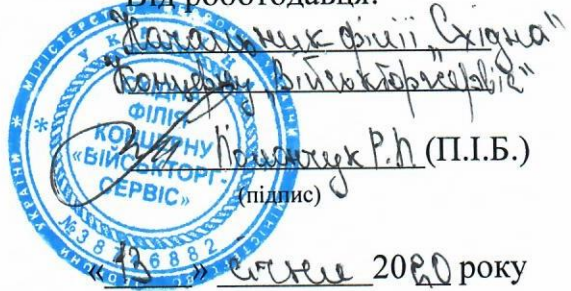 Від роботодавця:
Начальник філії „Східна"
Концерну „Військторгсервіс"
(П.І.Б.)
(підпис)
«13» січня 2020 року
МІНІСТЕРСТВО ОБОРОНИ УКРАЇНИ
ФІЛІЯ
КОНЦЕРНУ
«ВІЙСЬКТОРГ-
СЕРВІС»